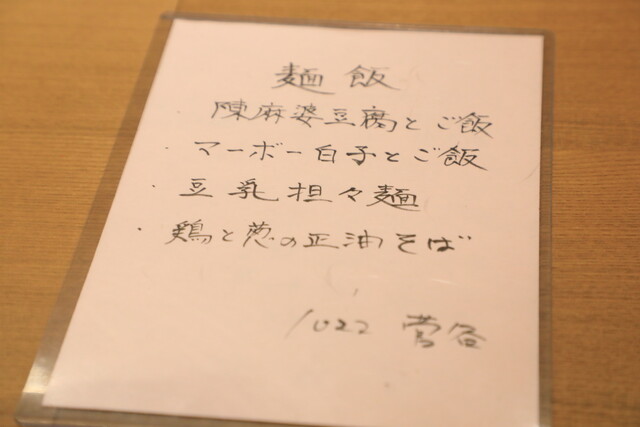 麺飯
陳麻婆豆腐とご飯
・マーボー白子とご飯
・豆乳担々麺
・鶏と葱の正油そば
1022 菅谷